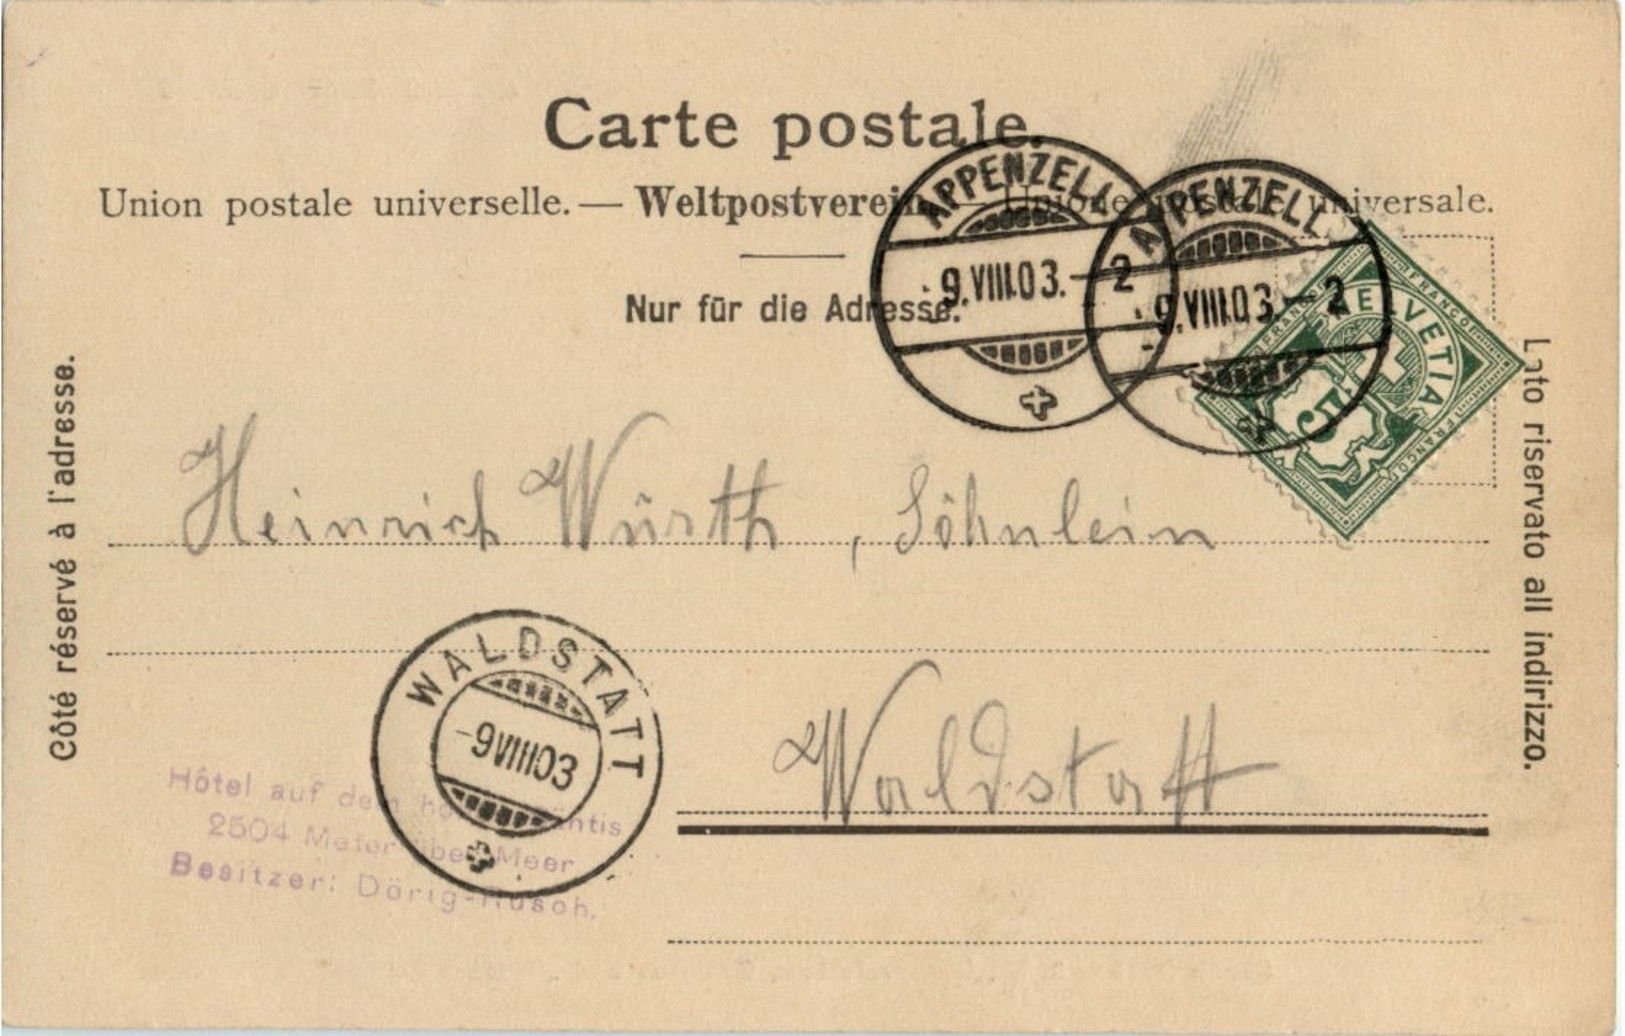 Carte postale.
Union postale universelle. — Weltpostverein — Unione postale universale.
Nur für die Adresse.
APPENZELL
9.VIII.03.–2
APPENZELL
9.VIII.03–2
HELVETIA
FRANCO
FRANCO
FRANCO
5
Côté réservé à l'adresse.
Lato riservato all indirizzo.
Heinrich Würth, Söhnlein
WALDSTATT
-9VIII03
Waldstatt
Hôtel auf dem hohen Säntis
2504 Meter über Meer
Besitzer: Dörig-Rusch.